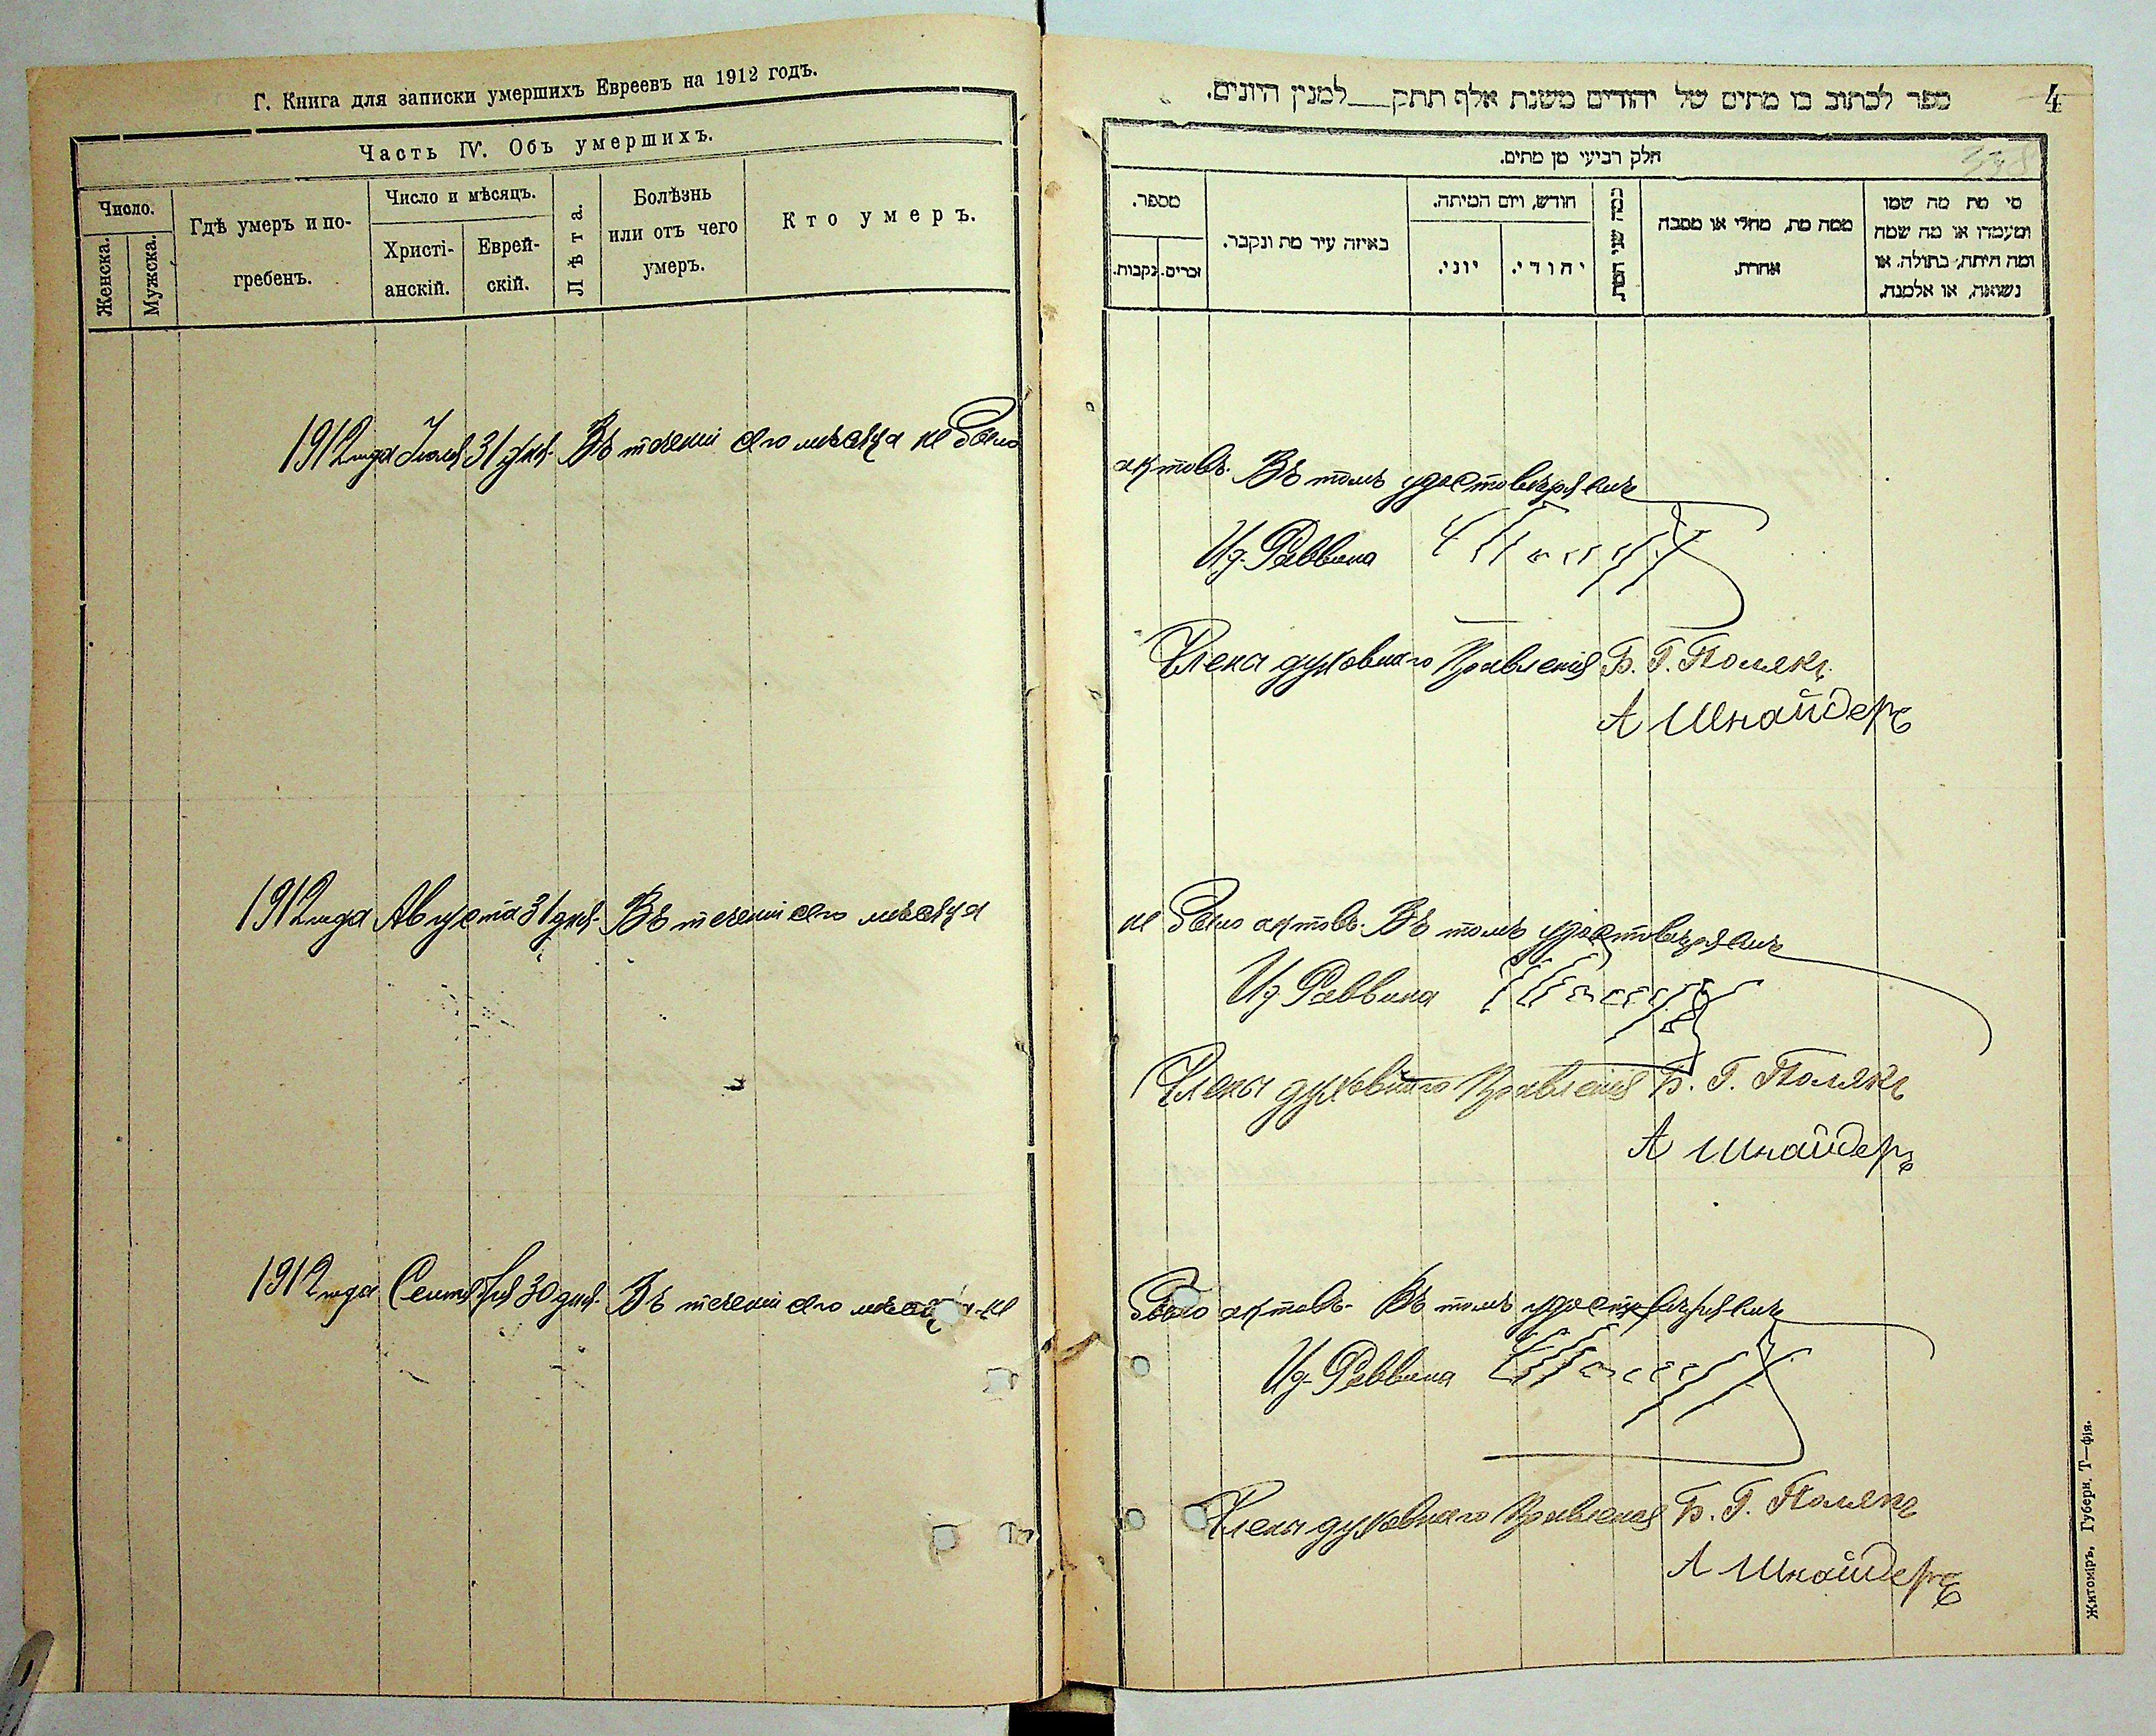 Г. Книга для записки умершихъ Евреевъ на 1912 годъ.
Часть IV. Объ умершихъ.
Число.
Женска.
Мужска.
Гдѣ умеръ и по-
гребенъ.
Число и мѣсяцъ.
Христі-
анскій.
Еврей-
скій.
Лѣта.
Болѣзнь
или отъ чего
умеръ.
Кто умеръ.
1912 года Іюля 31 дня. Въ теченіи сего мѣсяца не было
1912 года Августа 31 дня. Въ теченіи сего мѣсяца
1912 года Сентября 30 дня. Въ теченіи сего мѣсяца не
4
ספר לכתוב בו מתים של יהודים משנת אלף תתק___למנין היונים.
חלק רביעי מן מתים.
מספר.
נקבות.
זכרים.
באיזה עיר מת ונקבר.
חודש, ויום המיתה.
יוני.
יהודי.
כמה שני המת.
ממה מת, מחלי או מסבה
אחרת.
מי מת מה שמו
ומעמדו או מה שמה
ומה היתה, בתולה, או
נשואה, או אלמנה.
актовъ. Въ томъ удостовѣряемъ
И.д. Раввина
Члены духовнаго Правленія Б. Г. Полякъ
А Шнайдеръ
не было актовъ. Въ томъ удостовѣряемъ
И.д. Раввина
Члены духовнаго Правленія Б. Г. Полякъ
А Шнайдеръ
было актовъ. Въ томъ удостовѣряемъ
И.д. Раввина
Члены духовнаго Правленія Б. Г. Полякъ
А Шнайдеръ
Житоміръ, Губерн. Т—фія.